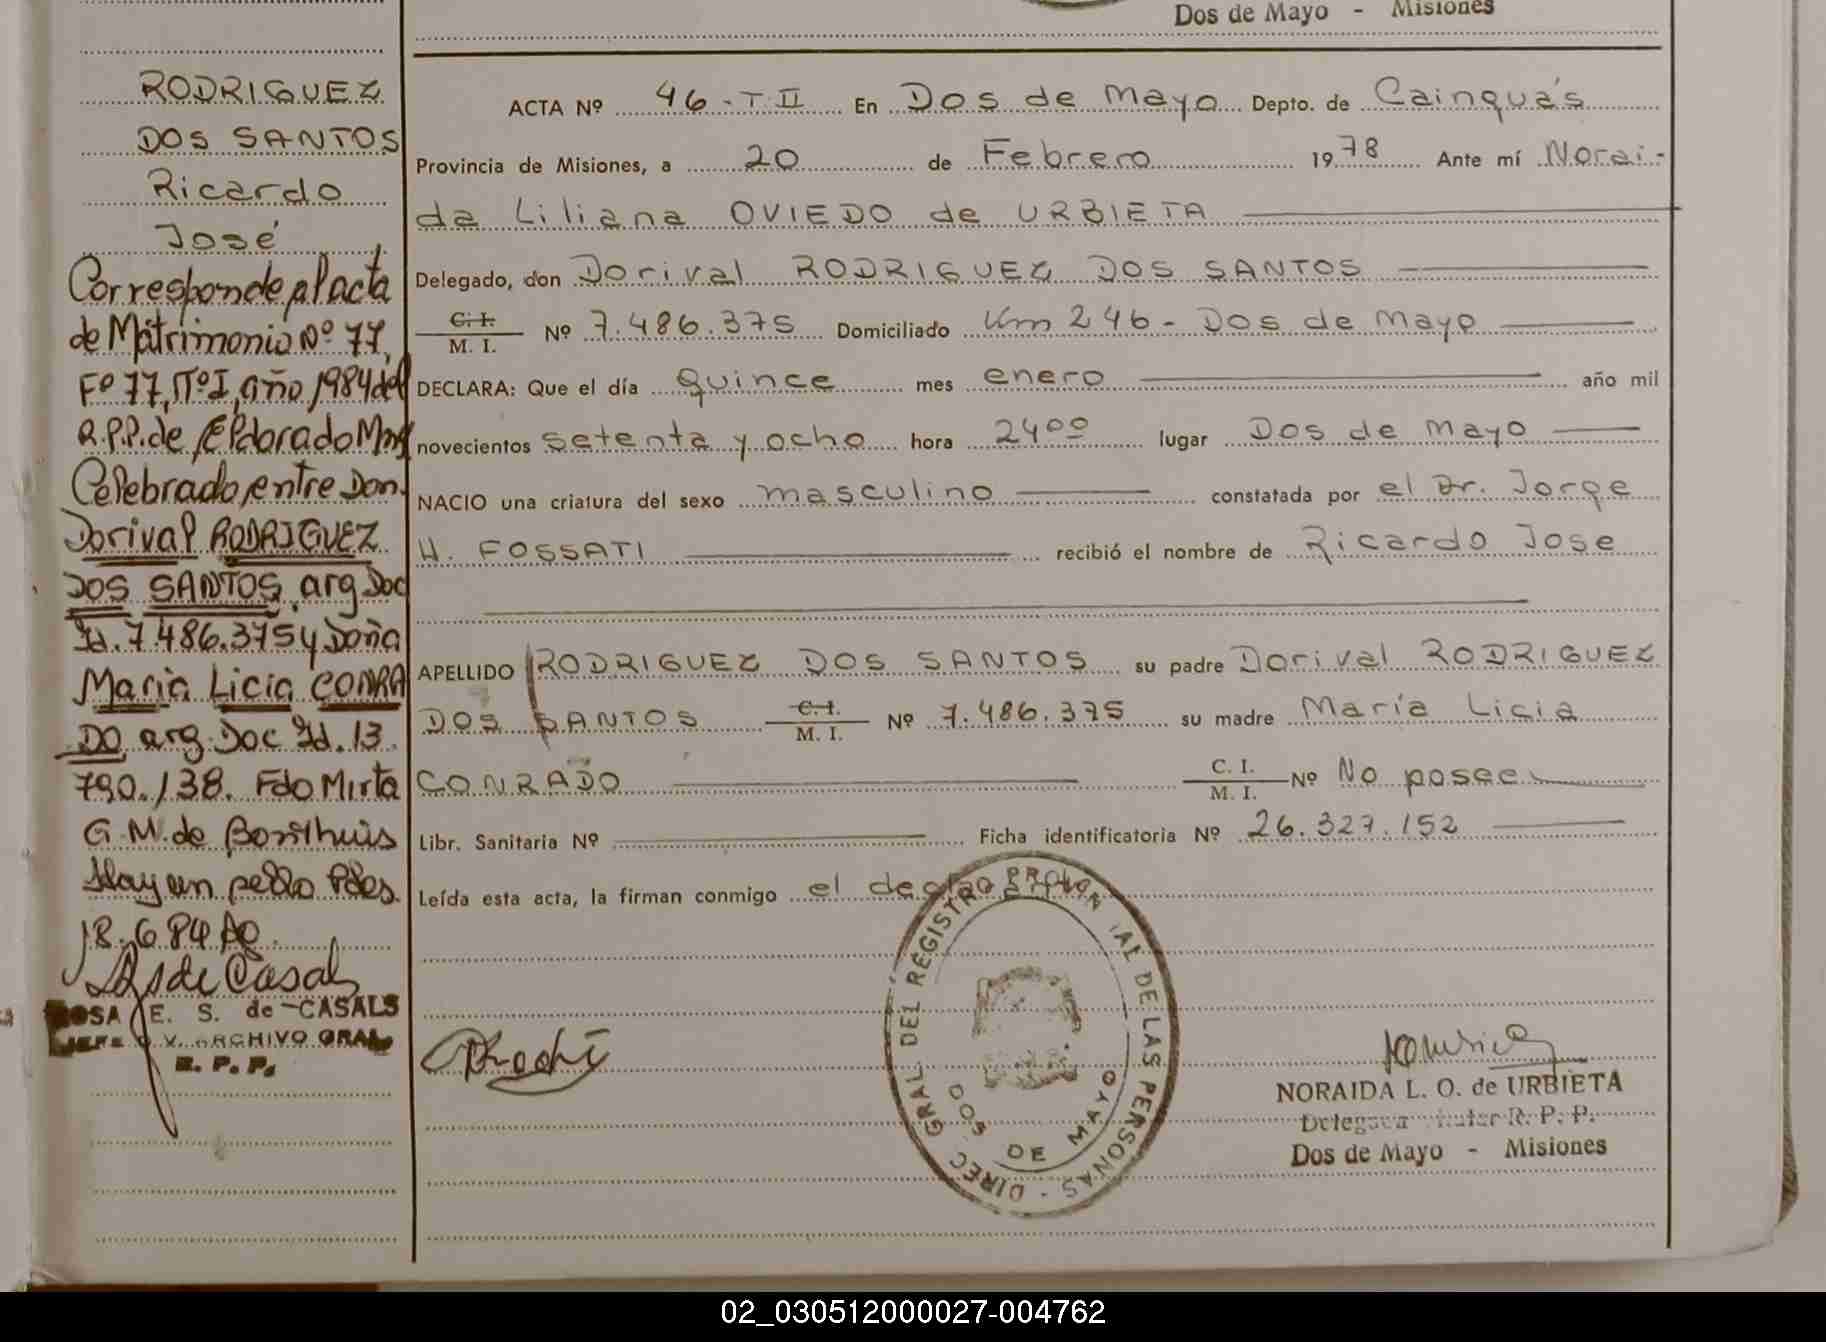 Dos de Mayo - Misiones
RODRIGUEZ
DOS SANTOS
Ricardo
José
Corresponde al acta
de Matrimonio Nº 77,
Fº 77, TºI, año 1984 del
R.P.P. de Eldorado Mnes
Celebrado entre Don
Dorival RODRIGUEZ
DOS SANTOS, arg Doc
Id. 7.486.375 y Doña
Maria Licia CONRA
DO arg. Doc Id. 13.
790.138. Fdo Mirta
G. M. de Bonthuis
Hay un sello Pdas.
18.6 84
ROSA E. S. de CASALS
JEFE ARCHIVO GRAL
R. P. P.
ACTA Nº 46 - T II En Dos de Mayo Depto. de Cainguás
Provincia de Misiones, a 20 de Febrero 1978 Ante mí Norai-
da Liliana OVIEDO de URBIETA
Delegado, don Dorival RODRIGUEZ DOS SANTOS
C. I.
M. I. Nº 7.486.375 Domiciliado Km 246 - Dos de Mayo
DECLARA: Que el día quince mes enero año mil
novecientos setenta y ocho hora 24ºº lugar Dos de Mayo
NACIO una criatura del sexo masculino constatada por el Dr. Jorge
H. FOSSATI recibió el nombre de Ricardo Jose
APELLIDO RODRIGUEZ DOS SANTOS su padre Dorival RODRIGUEZ
DOS SANTOS C. I. M. I. Nº 7.486.375 su madre María Licia
CONRADO C. I. M. I. Nº No posee
Libr. Sanitaria Nº Ficha identificatoria Nº 26.327.152
Leída esta acta, la firman conmigo el declarante
DIREC. GRAL DEL REGISTRO PROVINCIAL DE LAS PERSONAS -
DOS DE MAYO
NORAIDA L. O. de URBIETA
Delegada Titular R. P. P.
Dos de Mayo - Misiones
02_030512000027-004762